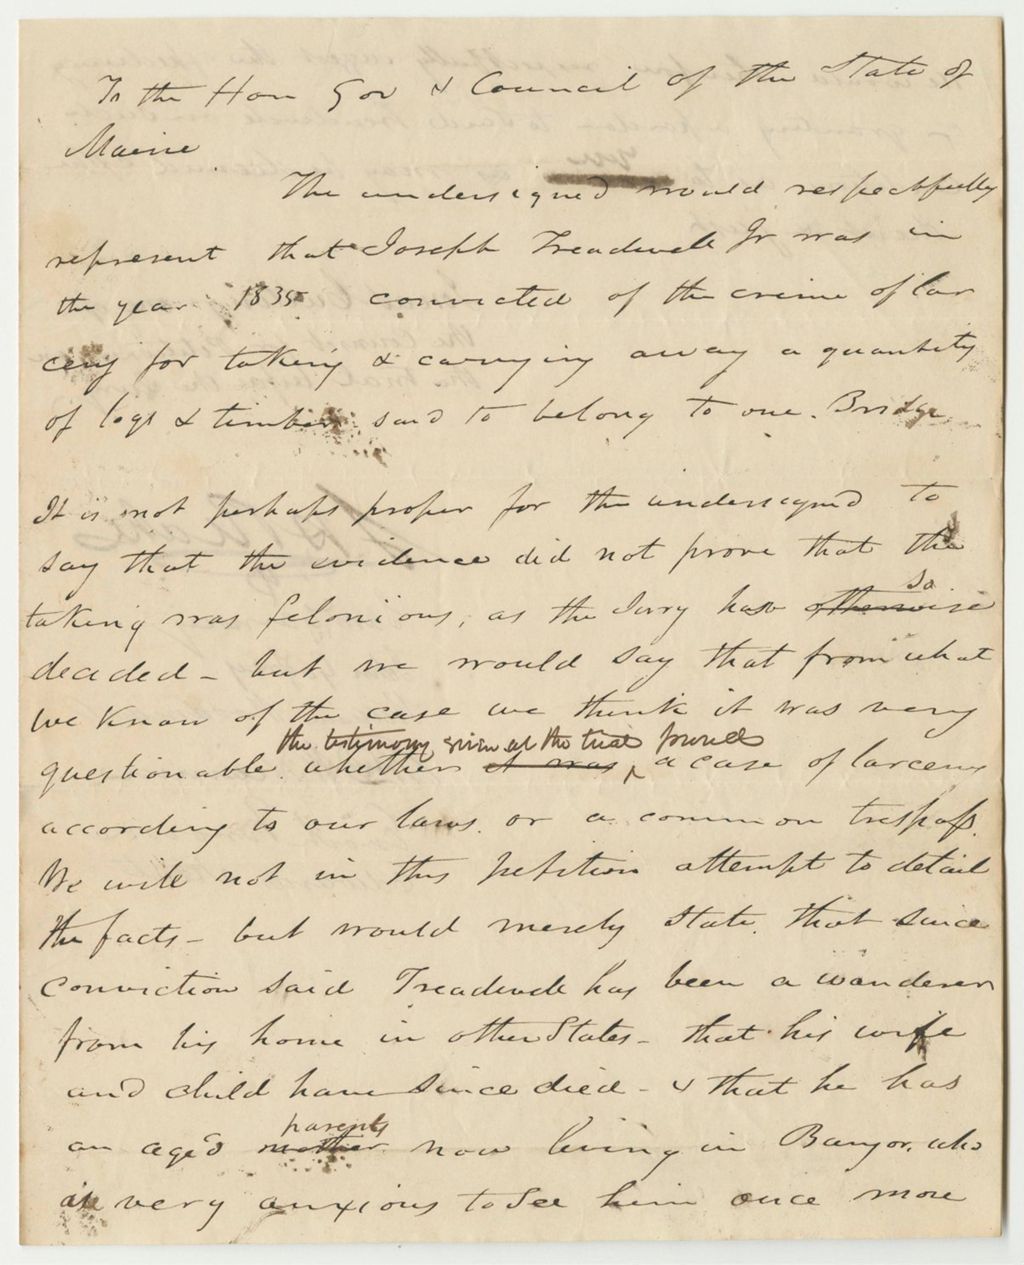 To the Hon Gov & Council of the State of
Maine
The undersigned would respectfully
represent that Joseph Treadwell Jr was in
the year 1835 convicted of the crime of lar
ceny for taking & carrying away a quantity
of logs & timber said to belong to one. Bridge
It is not perhaps proper for the undersigned to
say that the evidence did not prove that the
so
taking was felonious, as the Jury have otherwise
decided - but we would say that from what
we know of the case we think it was very
the testimony given at the trial proved
questionable whether it was a case of larceny
according to our laws. or a common trespass.
We will not in this petition attempt to detail
the facts - but would merely State. that since
conviction said Treadwell has been a wanderer
from his home in other States - that his wife
and child have since died - & that he has
parents
an aged mother now living in Bangor, who
are very anxious to See him once more